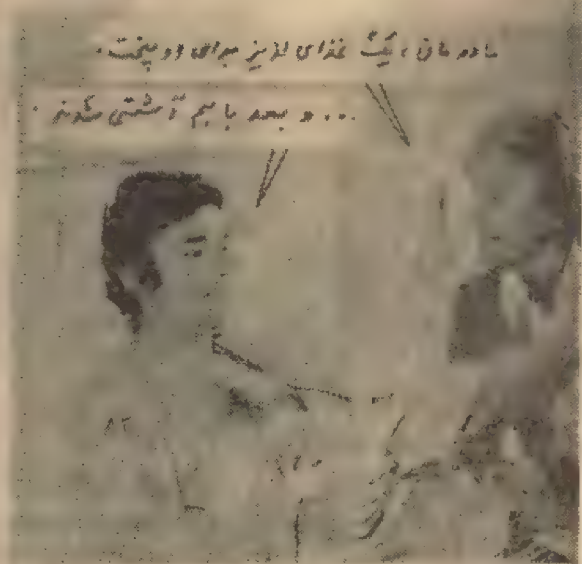 مادرمان ، یک غذای لذیذ برای او پخت .
... و بعد با هم آشتی کردند .